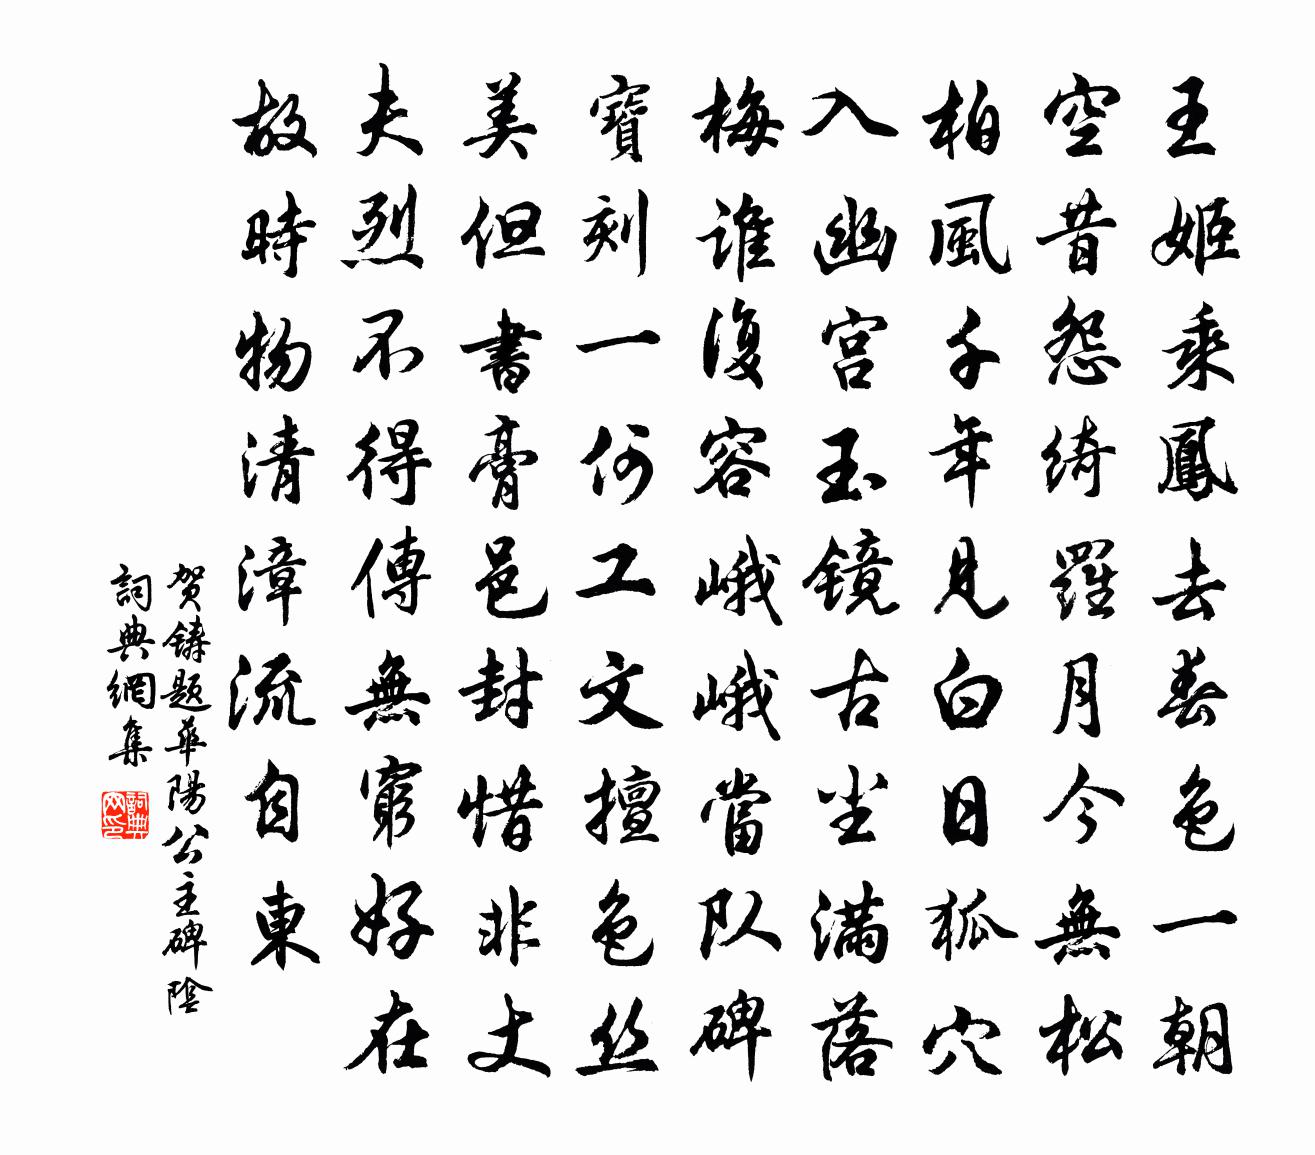 王姬乘鳳去春色一朝
空昔怨綺羅月今無松
柏風千年見白日狐穴
入幽宮玉鏡古尘滿落
梅誰復容峨峨當队碑
寶刻一何工文擅色丝
美但書膏邑封惜非丈
夫烈不得傳無窮好在
故時物清漳流自東
贺鑄題華陽公主碑陰
詞典網集
詞典